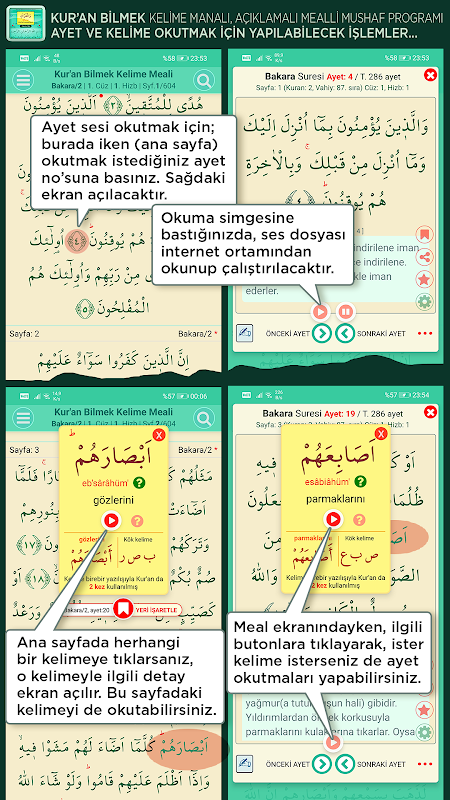 KUR'AN BİLMEK KELİME MANALI, AÇIKLAMALI MEALLİ MUSHAF PROGRAMI
AYET VE KELİME OKUTMAK İÇİN YAPILABİLECEK İŞLEMLER...
%58 23:53
Kur'an Bilmek Kelime Meali
Bakara/2 | 1. Cüz | 1. Hizb | Syf.1/604
هُدًى لِلْمُتَّق۪ينَۙ ﴿٢﴾ اَلَّذ۪ينَ يُؤْمِنُونَ
Ayet sesi okutmak için;
burada iken (ana sayfa)
okutmak istediğiniz ayet
no'suna basınız. Sağdaki
ekran açılacaktır.
هُمْ يُوقِنُونَۜ ﴿٤﴾ اُو۬لٰٓئِكَ
هُدًى مِنْ رَبِّهِمْ وَاُو۬لٰٓئِكَ هُمُ
الْمُفْلِحُونَ ﴿٥﴾
Sayfa: 2
Bakara/2 *
اِنَّ الَّذ۪ينَ كَفَرُوا سَوَٓاءٌ عَلَيْهِمْ
%58 23:53
Bakara Suresi Ayet: 4 / T. 286 ayet
Sayfa: 1 (Kuran: 2, Vahiy: 87. sıra) Cüz: 1, Hizb: 1
وَالَّذ۪ينَ يُؤْمِنُونَ بِمَٓا اُنْزِلَ اِلَيْكَ
وَمَٓا اُنْزِلَ مِنْ قَبْلِكَۚ وَبِالْاٰخِرَةِ
هُمْ يُوقِنُونَۜ ﴿٤﴾
Okuma simgesine
bastığınızda, ses dosyası
internet ortamından
okunup çalıştırılacaktır.
indirilene iman
ce indirilene.
kle iman
ederler.
ÖNCEKİ AYET
SONRAKİ AYET
%57 00:06
Kur'an Bilmek Kelime Meali
Bakara/2 | 1. Cüz | 1. Hizb | Syf.2/604
Sayfa: 3
Bakara/2 *
مَثَلُهُمْ
فَلَمَّٓا
اَبْصَارَهُمْ
eb'sârâhüm'
gözlerini
gözlerini
Kök kelime
اَبْصَارَهُمْ
ب ص ر
Kelime birebir yazılışıyla Kur'an da
2 kez kullanılmış
Bakara/2, ayet:20
YERİ İŞARETLE
Ana sayfada herhangi
bir kelimeye tıklarsanız,
o kelimeyle ilgili detay
ekran açılır. Bu sayfadaki
kelimeyi de okutabilirsiniz.
اَبْصَارَهُمْۜ كُلَّمَٓا اَضَٓاءَ لَهُمْ مَشَوْا ف۪يهِۙ
وَاِذَٓا اَظْلَمَ عَلَيْهِمْ قَامُواۜ وَلَوْ شَٓاءَ اللّٰهُ
%58 23:54
Bakara Suresi Ayet: 19 / T. 286 ayet
اَصَابِعَهُمْ
esâbiâhüm'
parmaklarını
parmaklarını
Kök kelime
اَصَابِعَهُمْ
ص ب ع
Kelime birebir yazılışıyla Kur'an da
2 kez kullanılmış
Meal ekranındayken, ilgili
butonlara tıklayarak, ister
kelime isterseniz de ayet
okutmaları yapabilirsiniz.
yağmur(a tutulmuşun hali) gibidir.
Yıldırımlardan ölmek korkusuyla
parmaklarını kulaklarına tıkarlar. Oysa
ÖNCEKİ AYET
SONRAKİ AYET